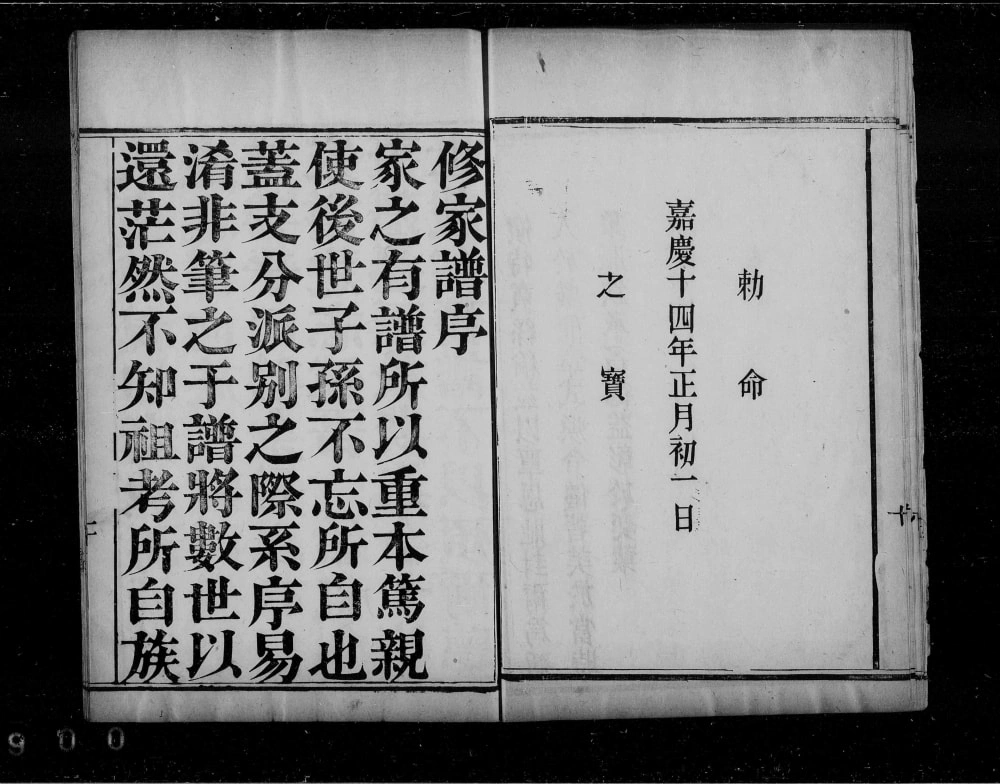 勅命
嘉慶十四年正月初一日
之寶
十
修家譜序
家之有譜所以重本篤親
使後世子孫不忘所自也
蓋支分派别之際系序易
淆非筆之于譜將數世以
還茫然不知祖考所自族